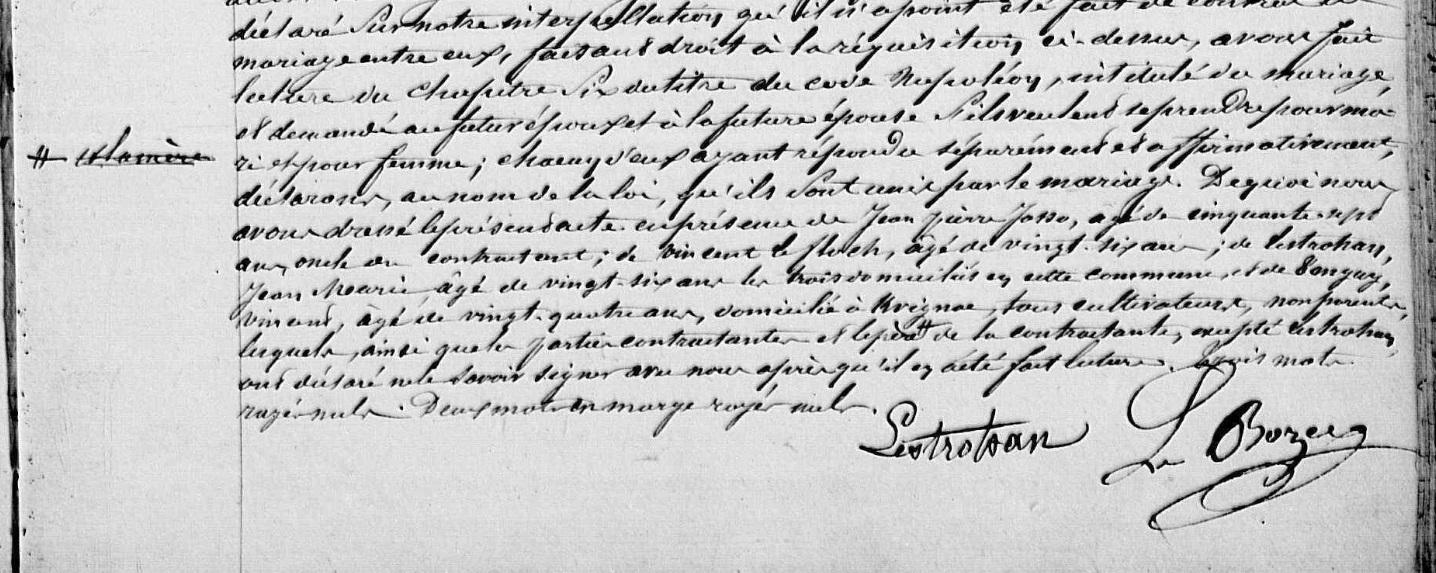 déclaré sur notre interpellation qu'il n'a point été fait de contrat de
mariage entre eux, faisant droit à la réquisition ci-dessus, avons fait
lecture du chapitre six du titre du code Napoléon, intitulé du mariage,
et demandé au futur époux et à la future épouse s'ils veulent se prendre pour ma-
ri et pour femme; chacun d'eux ayant répondu séparément et affirmativement,
# et la mère
déclarons, au nom de la loi, qu'ils sont unis par le mariage. De quoi nous
avons dressé le présent acte en présence de Jean Pierre Josso, âgé de cinquante-sept
ans, oncle du contractant; de Vincent le floch, âgé de vingt-six ans; de Lestrohan,
Jean Marie, âgé de vingt-six ans les trois domiciliés en cette commune, et de
Vincent, âgé de vingt-quatre ans, domicilié à Kvignac, tous cultivateurs, non parents,
lesquels, ainsi que les parties contractantes et le père # de la contractante, excepté Lestrohan,
ont déclaré ne le savoir signer avec nous après qu'il en a été fait lecture. trois mots
rayés nuls. Deux mots en marge rayés nuls.
Lestrohan Le Bozec